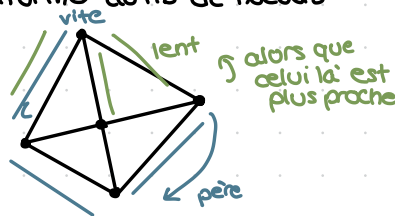 vite
lent
alors que
celui là est
plus proche
père